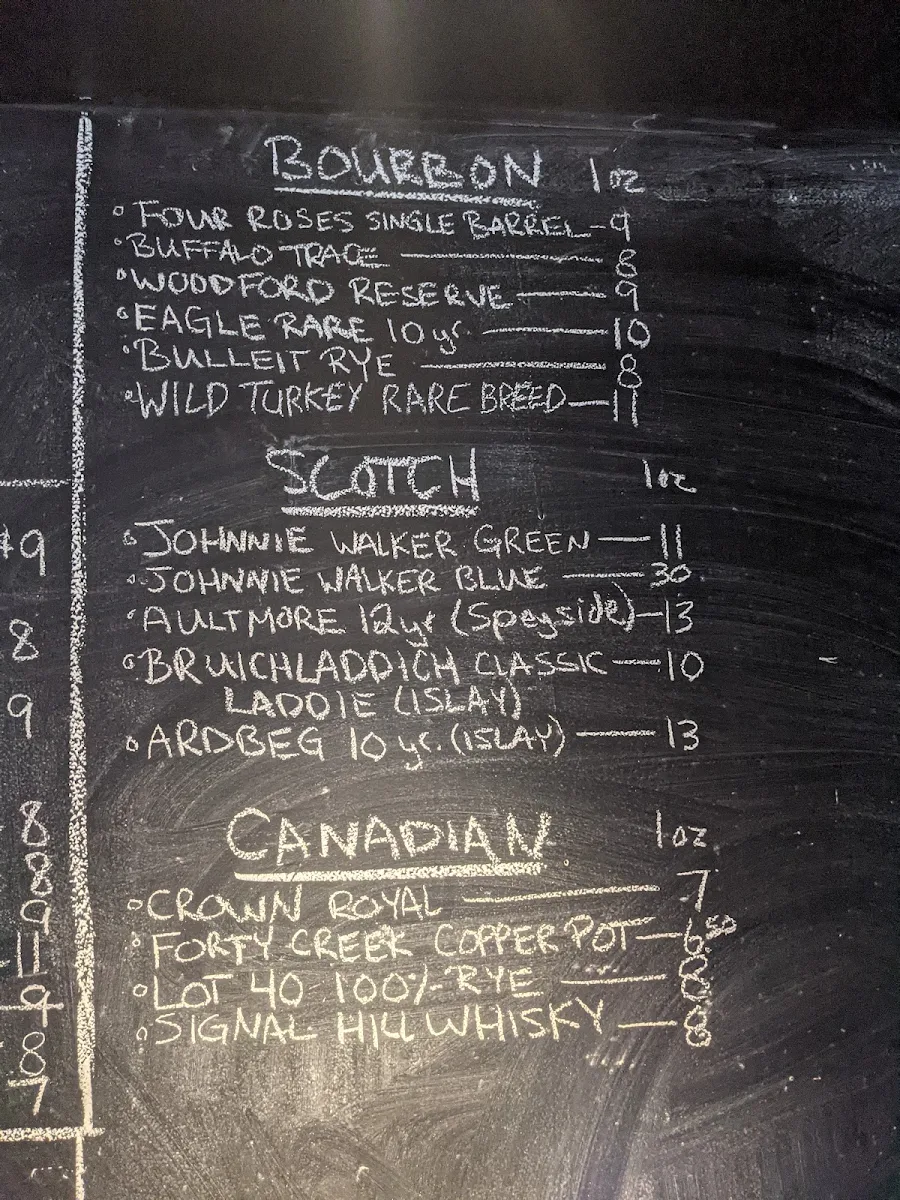 BOURBON 1 oz
FOUR ROSES SINGLE BARREL - 9
BUFFALO TRACE — 8
WOODFORD RESERVE — 9
EAGLE RARE 10 yr. — 10
BULLEIT RYE — 8
WILD TURKEY RARE BREED — 11
SCOTCH 1oz
JOHNNIE WALKER GREEN — 11
JOHNNIE WALKER BLUE — 30
AULTMORE 12yr (Speyside) — 13
BRUICHLADDICH CLASSIC — 10
LADDIE (ISLAY)
ARDBEG 10 yr. (ISLAY) — 13
CANADIAN 1oz
CROWN ROYAL — 7
FORTY CREEK COPPER POT — 6 50
LOT 40 100% RYE — 8
SIGNAL HILL WHISKY — 8
9
8
9
8
8
9
11
9
8
7